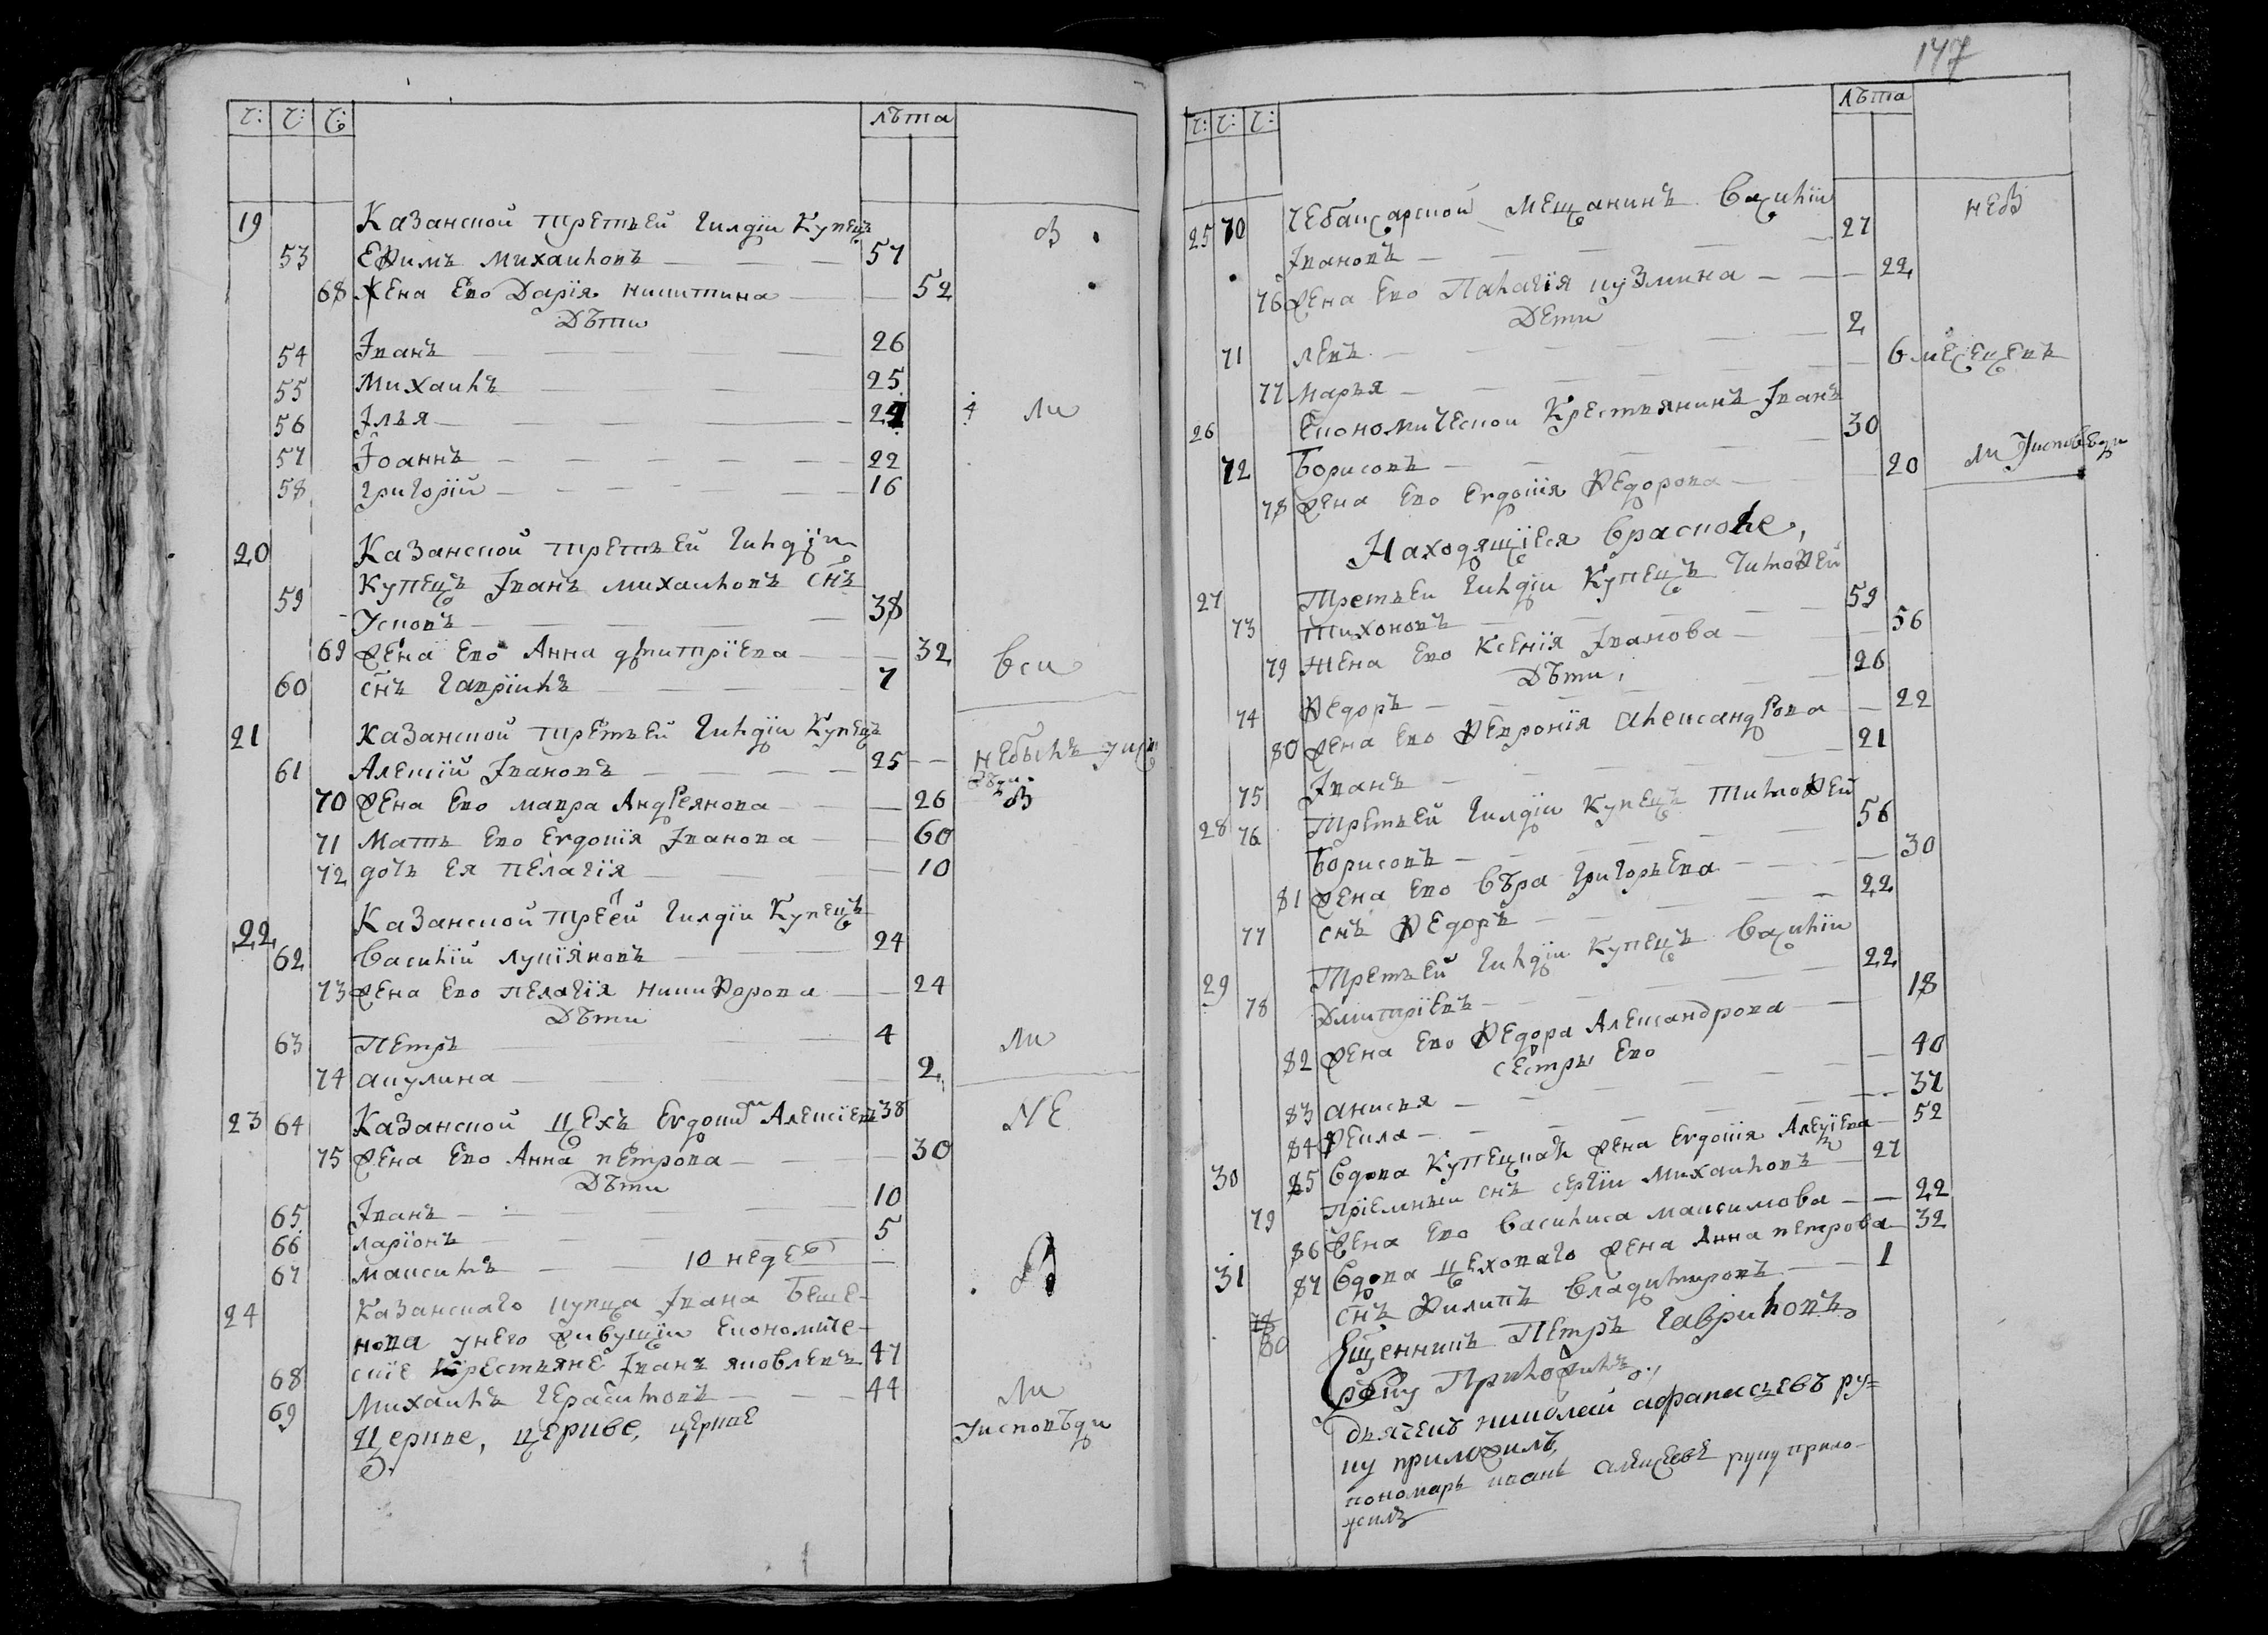 ч: ч: ч: лѣта
19 Казанской третьей гилдіи Купецъ
53 Ефимъ Михаиловъ 57
68 Жена Ево Дарія Никитина 52
Дѣти
54 Іванъ 26
55 Михаилъ 25
56 Ілья 24
57 Іоаннъ 22
58 Григорій 16
20 Казанской третьей гилдіи
59 Купецъ Іванъ Михаиловъ сн҃ъ
Усковъ 38
69 Жена Ево Анна Дмитріева 32
60 сн҃ъ Гавріилъ 7
21 Казанской третьей гилдіи Купецъ
61 Алексій Івановъ 25
70 Жена Ево Мавра Андреянова 26
71 Мать Ево Евдокія Іванова 60
72 дочь Ея Пелагія 10
22 Казанской третей гилдіи Купецъ
62 Василій Лукіяновъ 24
73 Жена Ево Пелагія Никифорова 24
Дѣти
63 Петръ 4
74 Акулина 2
23 64 Казанской цехъ Евдоким Алексіевъ 38
75 Жена Ево Анна Петрова 30
Дѣти
65 Іванъ 10
66 Ларіонъ 5
67 Максимъ 10 недел
24 Казанскаго купца Івана Беше-
нова унего живущіи Економиче-
68 скіе крестьяне Іванъ Яковлевъ 47
69 Михаилъ Герасимовъ 44
Церкве, церкве, церкве
в
ли
вси
небылъ уисп
вѣди
в
ли
НЕ
В
ли
уисповѣди
147
ч: ч: ч: лѣта
25 70 Чебаксарской мещанинъ Василіи
Івановъ 27 нев
76 Жена Ево Палагія Кузмина 22
Дети
71 Левъ 2
77 Марья 6 месецевъ
26 Економической Крестьянинъ Іванъ
72 Борисовъ 30
78 Жена Ево Евдокія Федорова 20 ли уисповеди
Находящіеся в расколе,
27 Третьей гилдіи Купецъ Тимофей
73 Тихоновъ 59
79 Жена Ево Ксенія Іванова 56
Дѣти,
74 Федоръ 26
80 Жена Ево Февронія Александрова 22
75 Іванъ 21
28 76 Третьей гилдіи Купецъ Тимофей
Борисовъ 56
81 Жена Ево Вѣра Григорьева 30
77 снъ Федоръ 22
29 Третьей гилдіи Купецъ Василіи
78 Дмитріевъ 22
82 Жена Ево Федора Александрова 18
Сестры Ево
83 Анисья 40
84 Фекла 37
30 85 Вдова Купецкая Жена Евдокія Алексіева 52
79 Пріемныи снъ Сергіи Михаиловъ 27
86 Жена Ево Василиса Максимова 22
31 87 Вдова Цеховаго Жена Анна Петрова 32
80 снъ Филипъ Владимировъ 1
Сщенникъ Петръ Гавриловъ
руку Приложилъ.
Дьячекъ Николай Афанасьевъ ру=
ку приложилъ,
пономарь іванъ алексеевъ руку прило-
жилъ